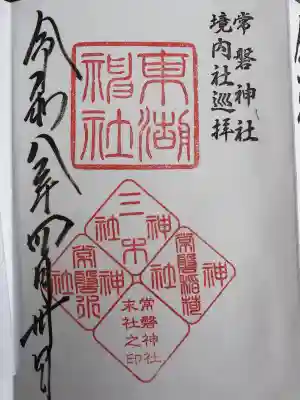 常磐神社
境内社巡拝
東湖
神社
三木
神社
常磐稲荷
神社
常磐
神社
常磐神社
末社之印
令和八年四月卅日